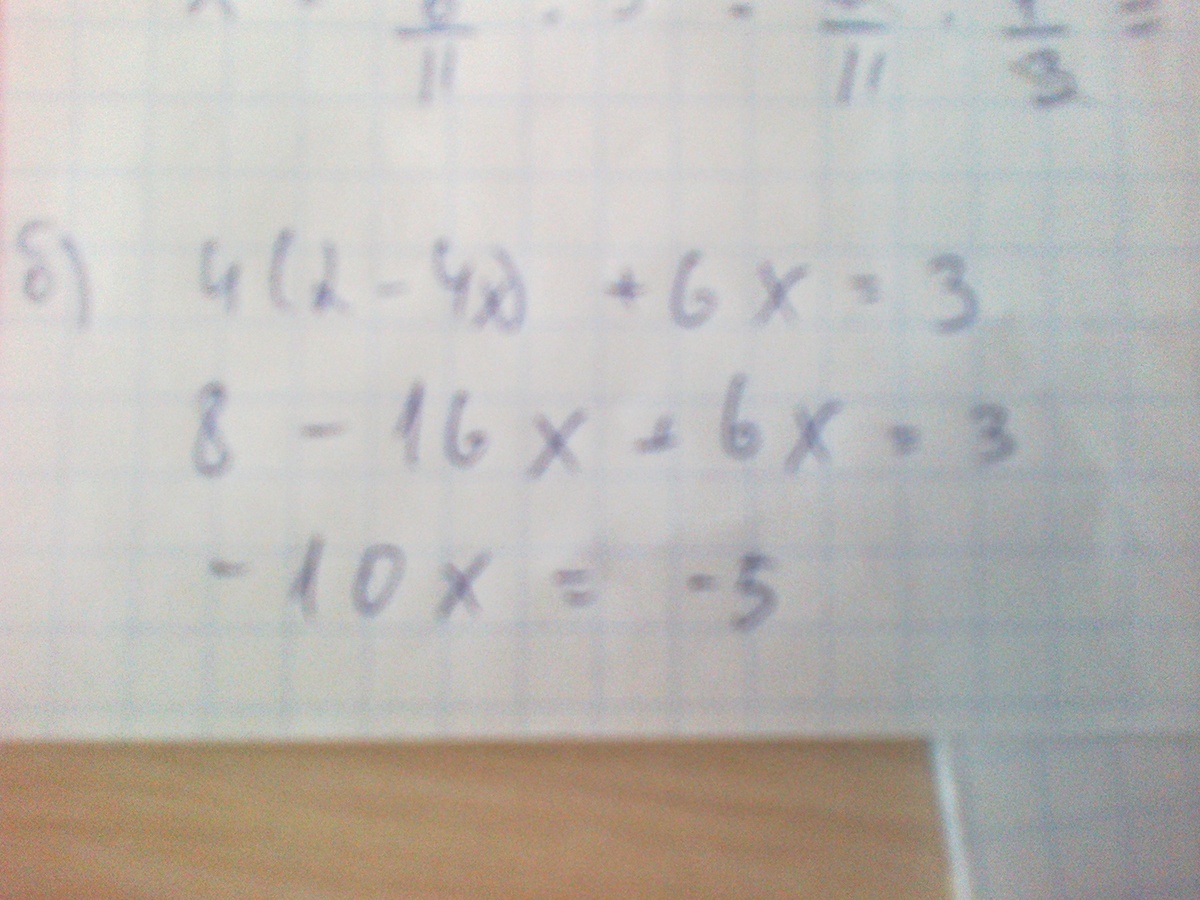 11 11 3 =
б) 4(2 - 4x) + 6x = 3
8 - 16x + 6x = 3
- 10x = -5